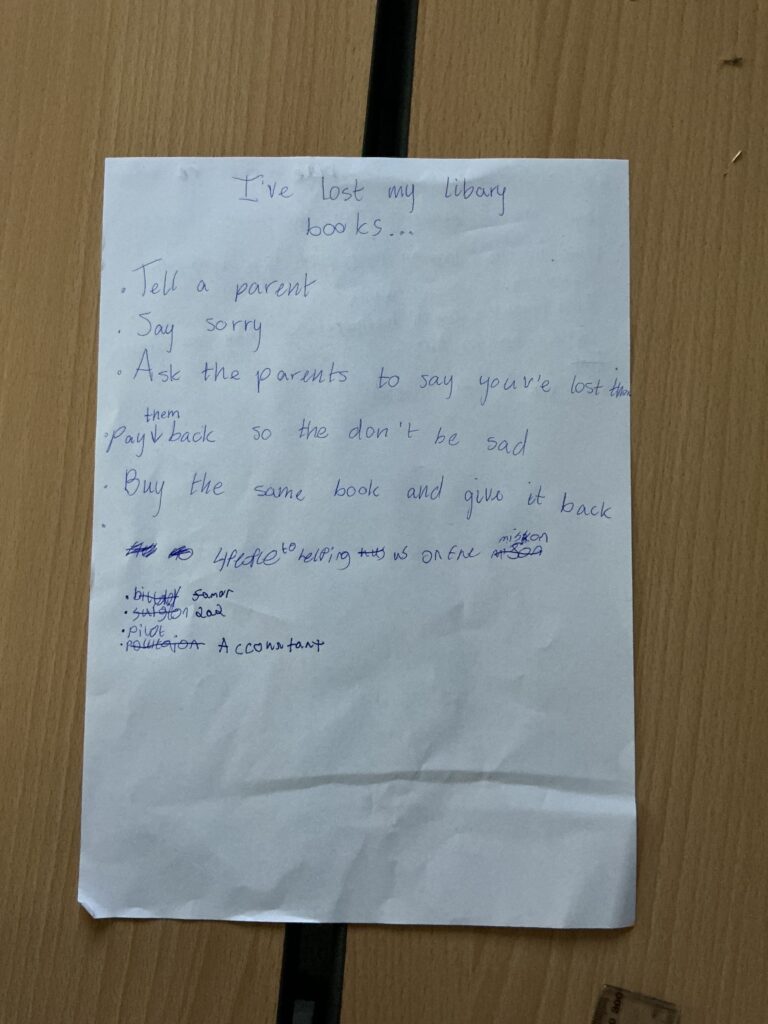 I've lost my libary
books...
• Tell a parent
• Say sorry
• Ask the parents to say youv'e lost them
• Pay them back so the don't be sad
• Buy the same book and give it back
•
4 People to helping us on the mission
• samor
• 202
• pilot
• Accountant